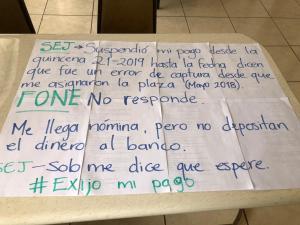 SEJ → Suspendió mi pago desde la
quincena 21-2019 hasta la fecha, dicen
que fue un error de captura desde que
me asignaron la plaza (Mayo 2018).
FONE No responde.
Me llega nómina, pero no depositan
el dinero al banco.
SEJ -- Sob me dice que espere.
# Exijo mi pago